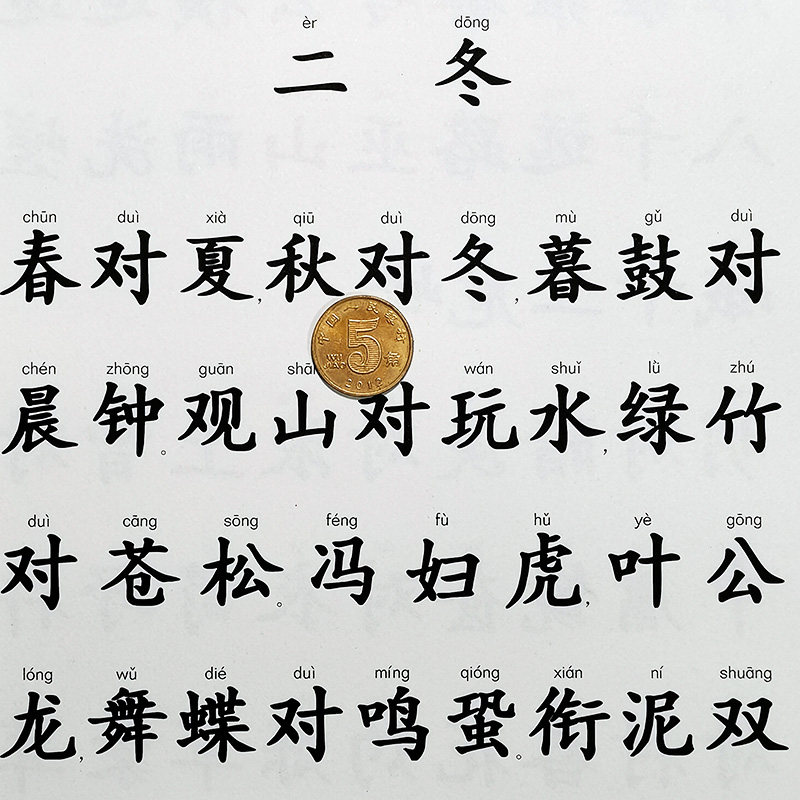 èr dōng
二 冬
chūn duì xià qiū duì dōng mù gǔ duì
春对夏,秋对冬,暮鼓对
chén zhōng guān wán shuǐ lǜ zhú
晨钟。观山对玩水,绿竹
duì cāng sōng féng fù hǔ yè gōng
对苍松。冯妇虎,叶公
lóng wǔ dié duì míng qióng xián ní shuāng
龙,舞蝶对鸣蛩。衔泥双
中国人民银行
5
WU JIAO
角
2012